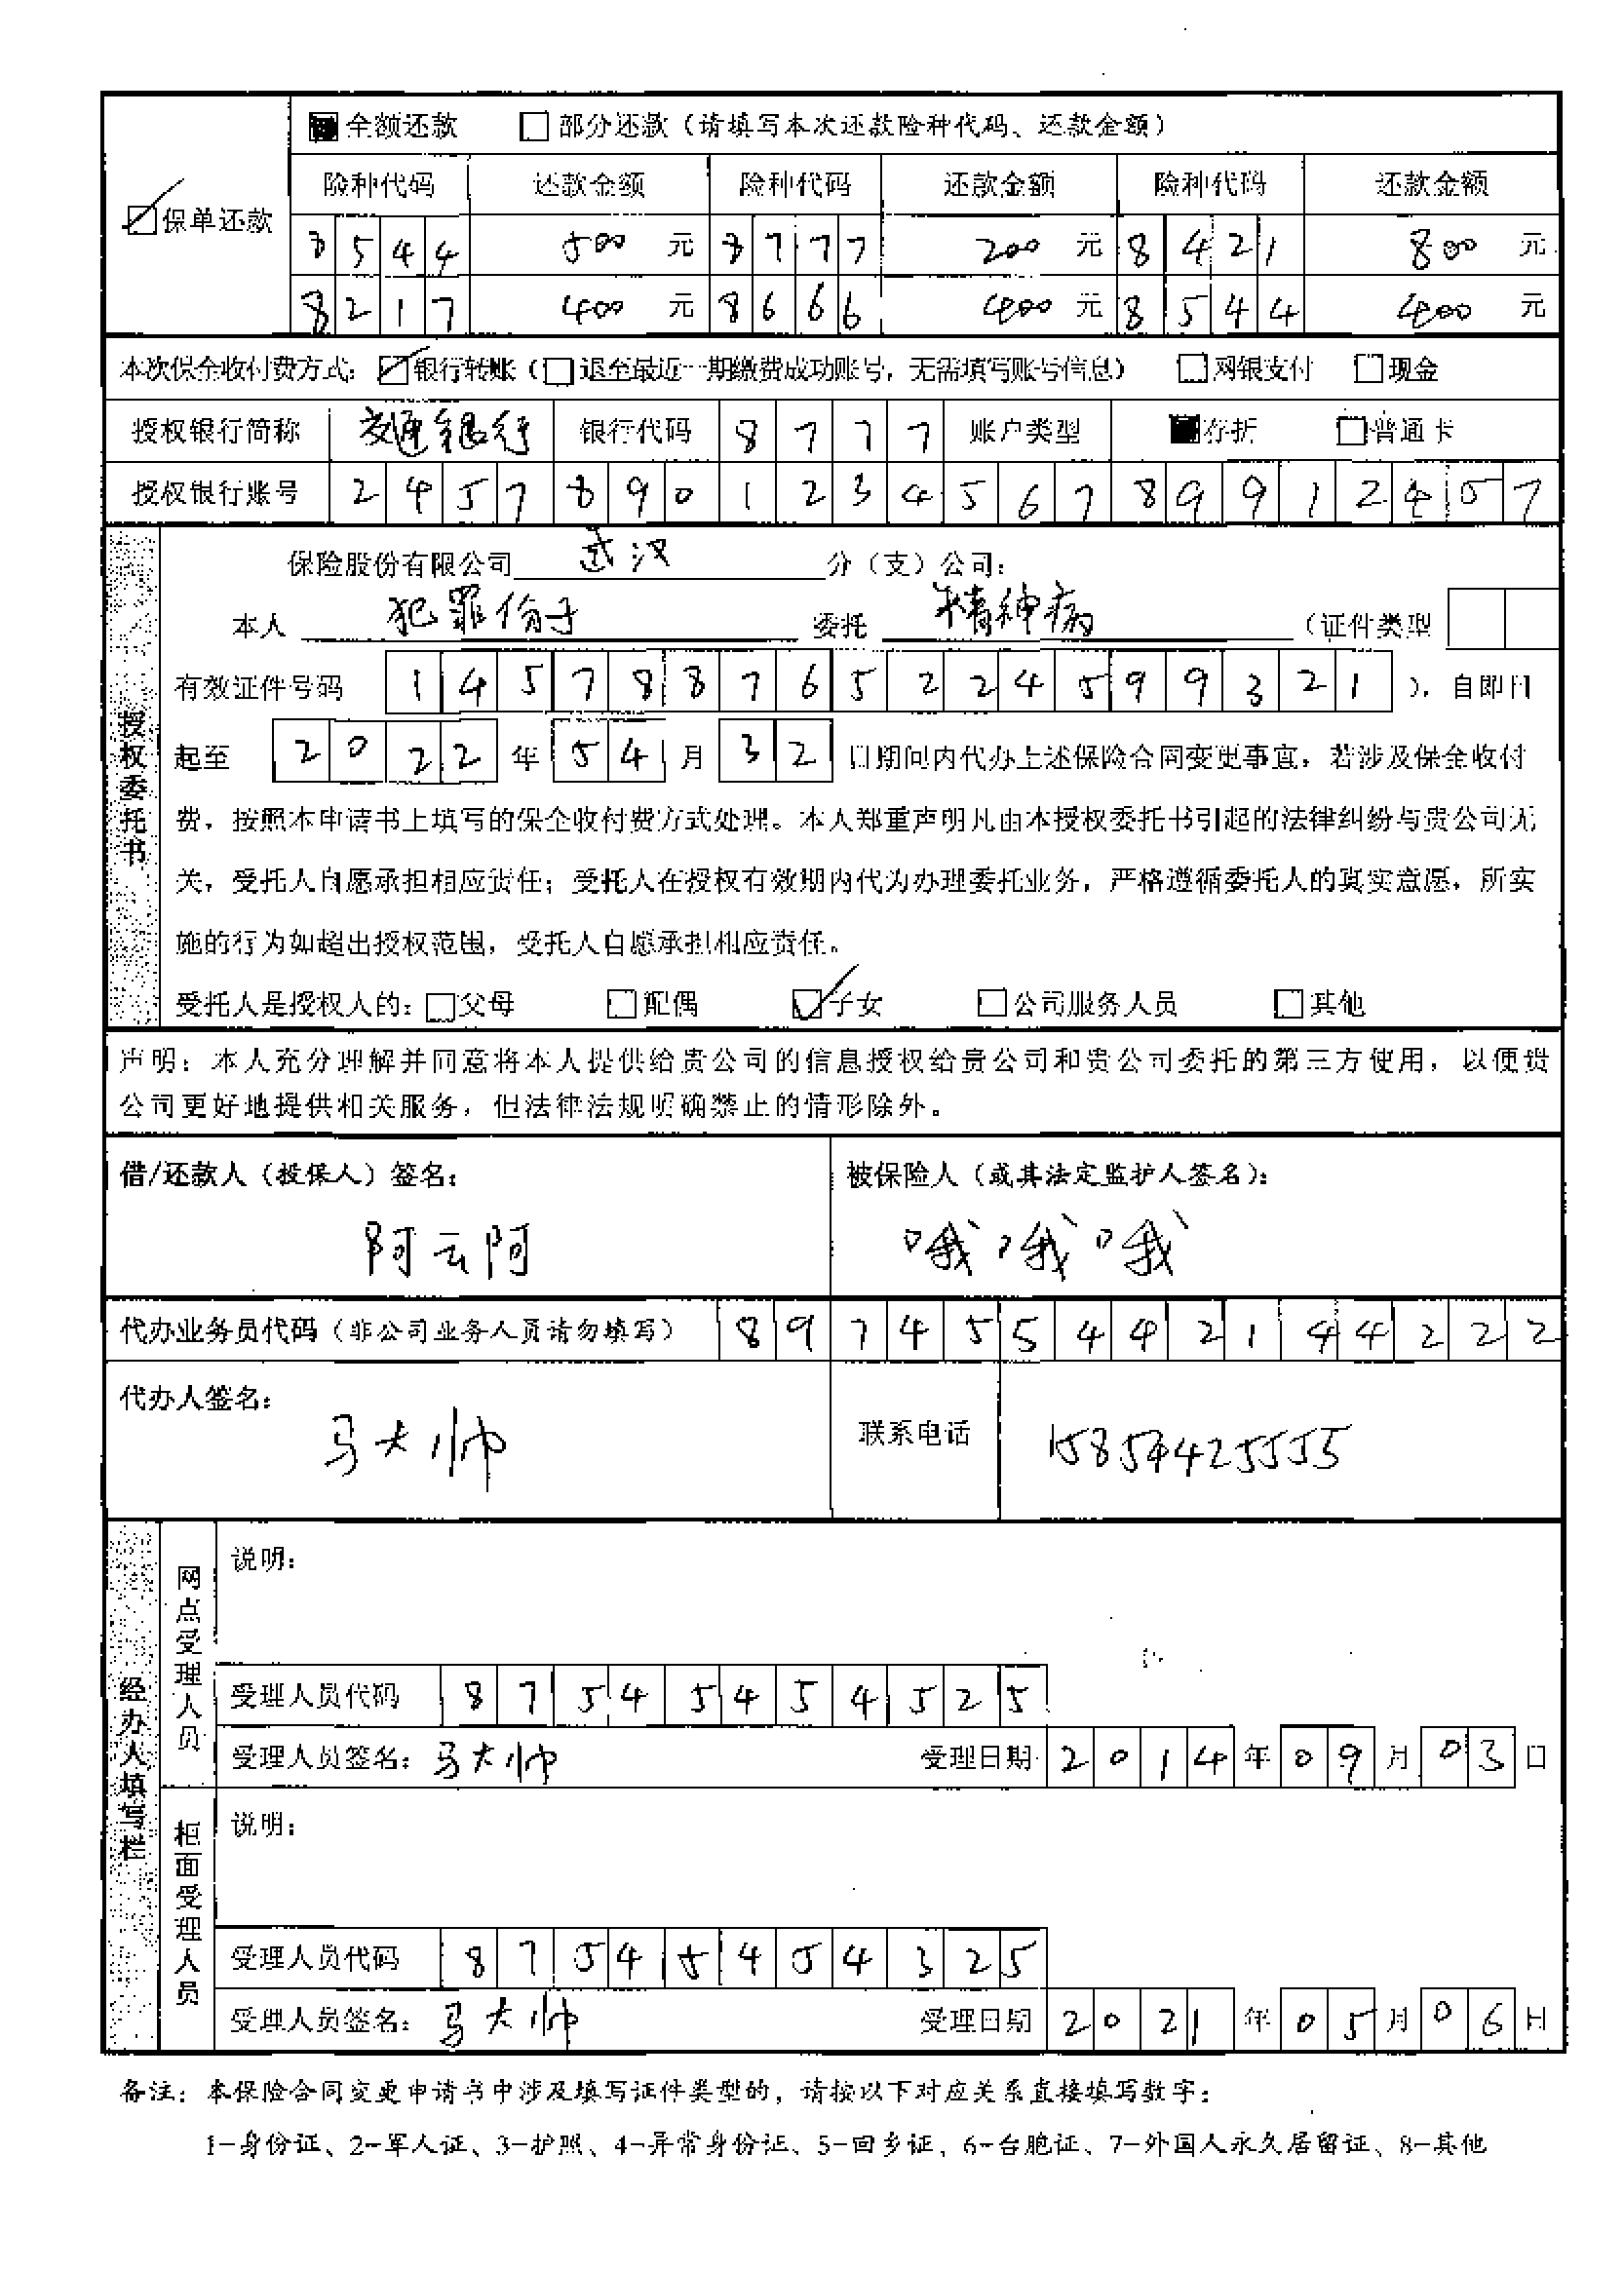 全额还款 部分还款（请填写本次还款险种代码、还款金额）
保单还款
险种代码 还款金额 险种代码 还款金额 险种代码 还款金额
7544 500 元 7777 200 元 8421 800 元
8217 400 元 8666 400 元 8544 400 元
本次保全收付费方式：银行转账（退至最近一期缴费成功账号，无需填写账号信息） 网银支付 现金
授权银行简称 交通银行 银行代码 8777 账户类型 存折 普通卡
授权银行账号 2457890123456789912457
授权委托书
保险股份有限公司 武汉 分（支）公司：
本人 犯罪份子 委托 精神病 （证件类型
有效证件号码 145788765224599321 ），自即日
起至 2022 年 54 月 32 日期间内代办上述保险合同变更事宜，若涉及保全收付
费，按照本申请书上填写的保全收付费方式处理。本人郑重声明凡由本授权委托书引起的法律纠纷与贵公司无
关，受托人自愿承担相应责任；受托人在授权有效期内代为办理委托业务，严格遵循委托人的真实意愿，所实
施的行为如超出授权范围，受托人自愿承担相应责任。
受托人是授权人的：父母 配偶 子女 公司服务人员 其他
声明：本人充分理解并同意将本人提供给贵公司的信息授权给贵公司和贵公司委托的第三方使用，以便贵
公司更好地提供相关服务，但法律法规明确禁止的情形除外。
借/还款人（投保人）签名： 被保险人（或其法定监护人签名）：
阿云阿 哦哦哦
代办业务员代码（非公司业务人员请勿填写） 897455442144222
代办人签名：
马大帅 联系电话 15854425555
经办人填写栏
网点受理人员
说明：
受理人员代码 87545454525
受理人员签名：马大帅 受理日期 2014 年 09 月 03 日
柜面受理人员
说明：
受理人员代码 87545454325
受理人员签名：马大帅 受理日期 2021 年 05 月 06 日
备注：本保险合同变更申请书中涉及填写证件类型的，请按以下对应关系直接填写数字：
1-身份证、2-军人证、3-护照、4-异常身份证、5-回乡证、6-台胞证、7-外国人永久居留证、8-其他